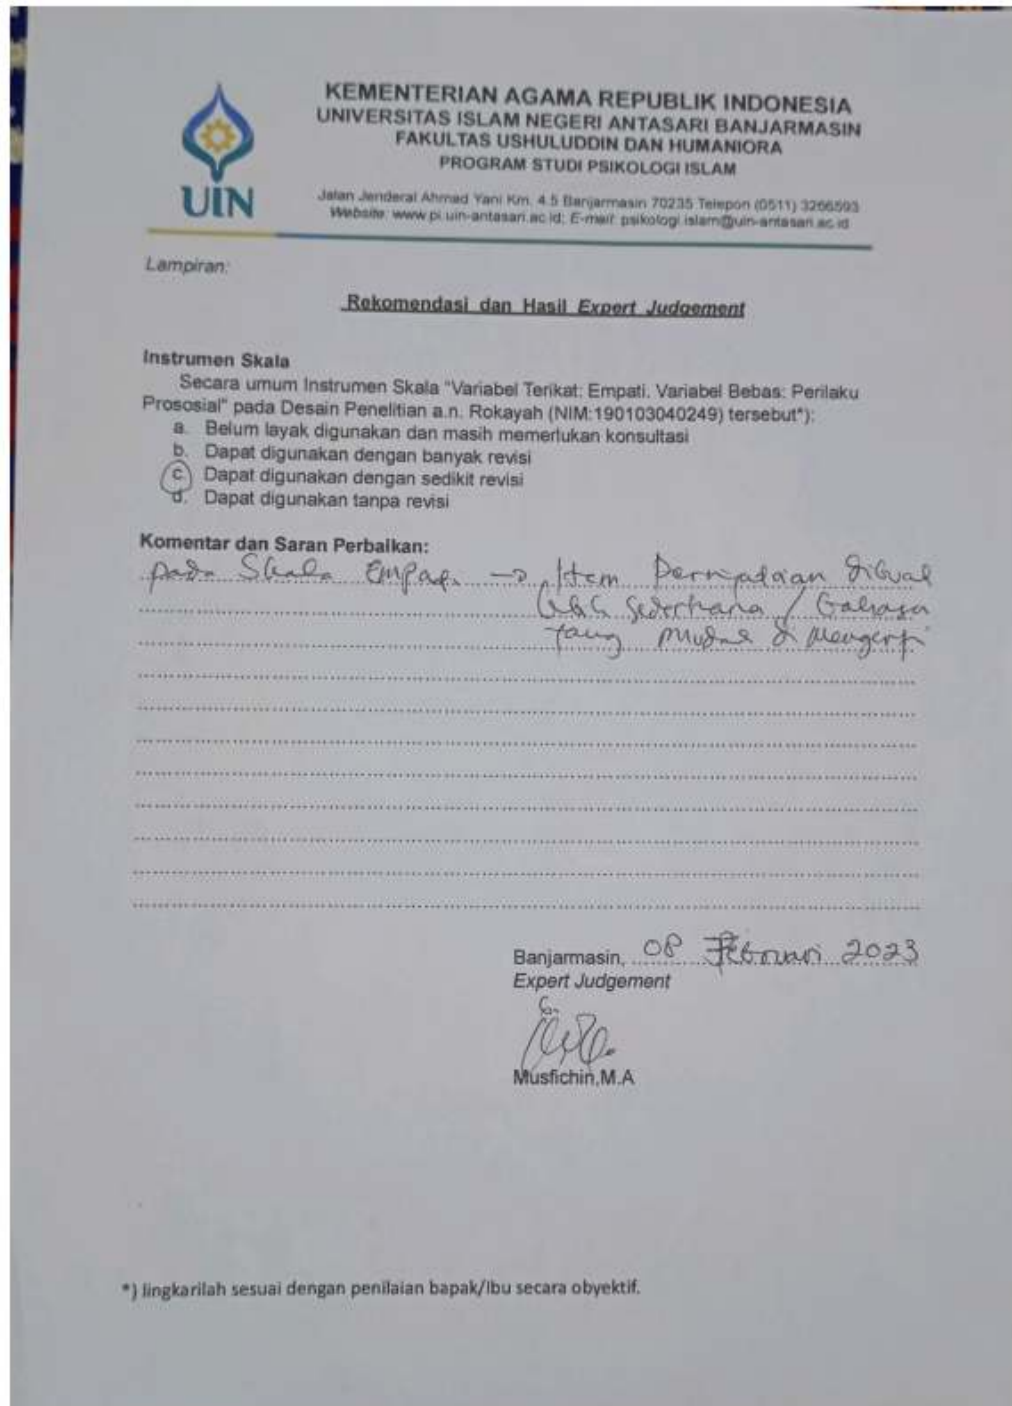 KEMENTERIAN AGAMA REPUBLIK INDONESIA
UNIVERSITAS ISLAM NEGERI ANTASARI BANJARMASIN
FAKULTAS USHULUDDIN DAN HUMANIORA
PROGRAM STUDI PSIKOLOGI ISLAM
UIN
Jalan Jenderal Ahmad Yani Km. 4.5 Banjarmasin 70235 Telepon (0511) 3266593
Website: www.pi.uin-antasari.ac.id; E-mail: psikologi.islam@uin-antasari.ac.id
Lampiran:
Rekomendasi dan Hasil Expert Judgement
Instrumen Skala
Secara umum Instrumen Skala "Variabel Terikat: Empati. Variabel Bebas: Perilaku
Prososial" pada Desain Penelitian a.n. Rokayah (NIM:190103040249) tersebut*):
a. Belum layak digunakan dan masih memerlukan konsultasi
b. Dapat digunakan dengan banyak revisi
c. Dapat digunakan dengan sedikit revisi
d. Dapat digunakan tanpa revisi
Komentar dan Saran Perbaikan:
pada Skala Empati → Item Pernyataan dibuat
sederhana / bahasa
yang mudah di mengerti
Banjarmasin, 08 Februari 2023
Expert Judgement
Musfichin,M.A
*) lingkarilah sesuai dengan penilaian bapak/Ibu secara obyektif.